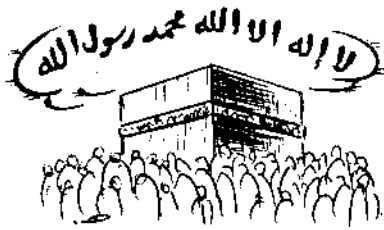 لا إله الا الله محمد رسول الله